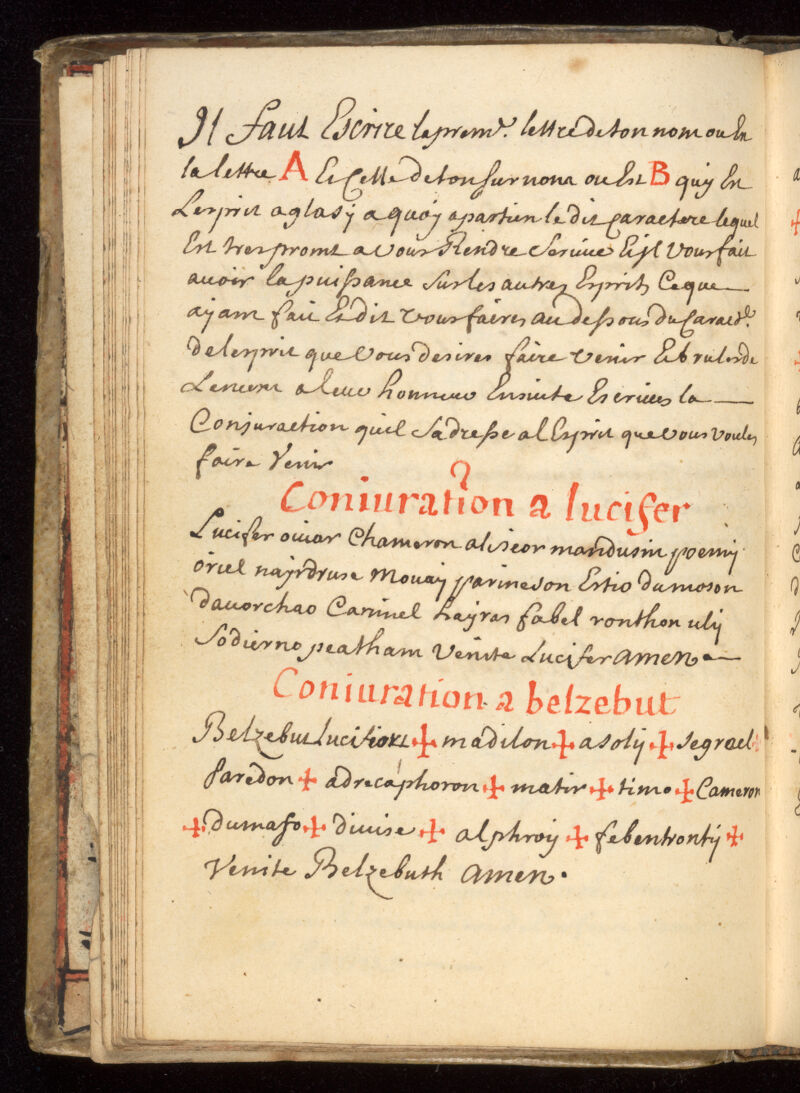 Il faut Escrire la prem.e lettre de ton nom ou En
la lettre A Et Celle de ton surnom ou Est B quy En
Lesprit aglasÿ a quoy apartien le dit Caractere lequel
Est tres promt a vous Rendre Seruice Et Il vous fait
auoir la puissance sur les autres Esprits Ce que
ayant fait Et dit vous faires au dessous du Caract.e
de lesprit que vous desires faire venir Et brules de
Lencent a leur honneur Ensuite Escriues la
Conjuraction quil Sadresse al Esprit que vous voules
faire Venir
Coniuration a lucifer
Lucifer ouiar Chameron aliseor mandusin poemij
oriel nayrdruse Mouay parineson Estio dumoson
dauorchao Casmiel hayras fabel ronthon ulij
Sodierno peatham Venite Lucifer amen
Coniuration a belzebut
Belzebut Lucifiort ✠ madilon ✠ asolij ✠ segrael ✠
Faredon ✠ adrecaphoron ✠ matir ✠ timo ✠ Cameron
✠ dumaso ✠ diuise ✠ alphroij ✠ febentrontij ✠
Venite Belzebuth amen.